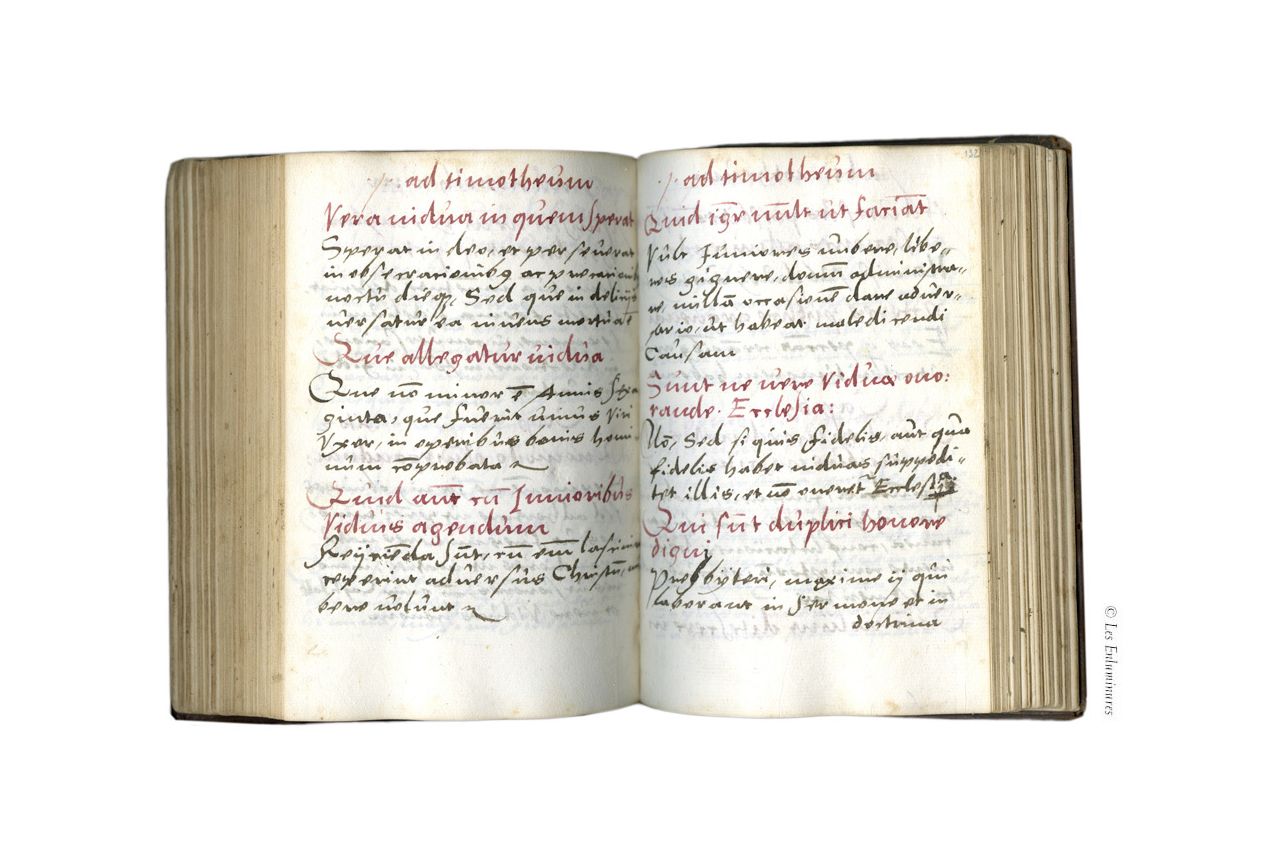 p. ad timotheum
Vera uidua in quem sperat
Sperat in deo, et perseuerat
in obsecracionibꝯ ac precacionibꝯ
noctu dieqꝫ. Sed que in delicijs
uersatur ea iuuens mortua ē
Que allegatur uidua
Que nō minor ē Annis sexa
ginta, que fuerit unius Viri
Vxor, in operibus bonis homi
num cōprobata
Quid aut cū Iunioribus
Viduis agendum
Reijciēda sūt, cū em lasciuire
ceperint aduersus Christū,
bere uolunt
p. ad timotheum
132
Quid igr uult ut faciāt
Vult Iuniores nubere, libe-
ros gignere, domū administra-
re, nullā occasionē dare aduer-
sario, ut habeat maledicendi
Causam
Sunt ne uere Viduæ ono:
rande. Ecclesia:
Nō, Sed si quis fidelis, aut qua
fidelis habet uiduas suppedi-
tet illis, et nō oneret Ecclesia
Qui sūt duplici honore
digni
Presbyteri, maxime ij qui
laborant in sermone et in
doctrina
© Les Enluminures